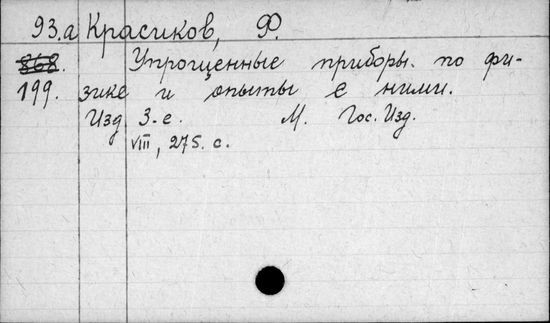 93.а Красиков, Ф.
868. Упрощенные приборы по фи-
199. зике и опыты с ними.
Изд 3-е. М. Гос. Изд.
VIII, 275. с.